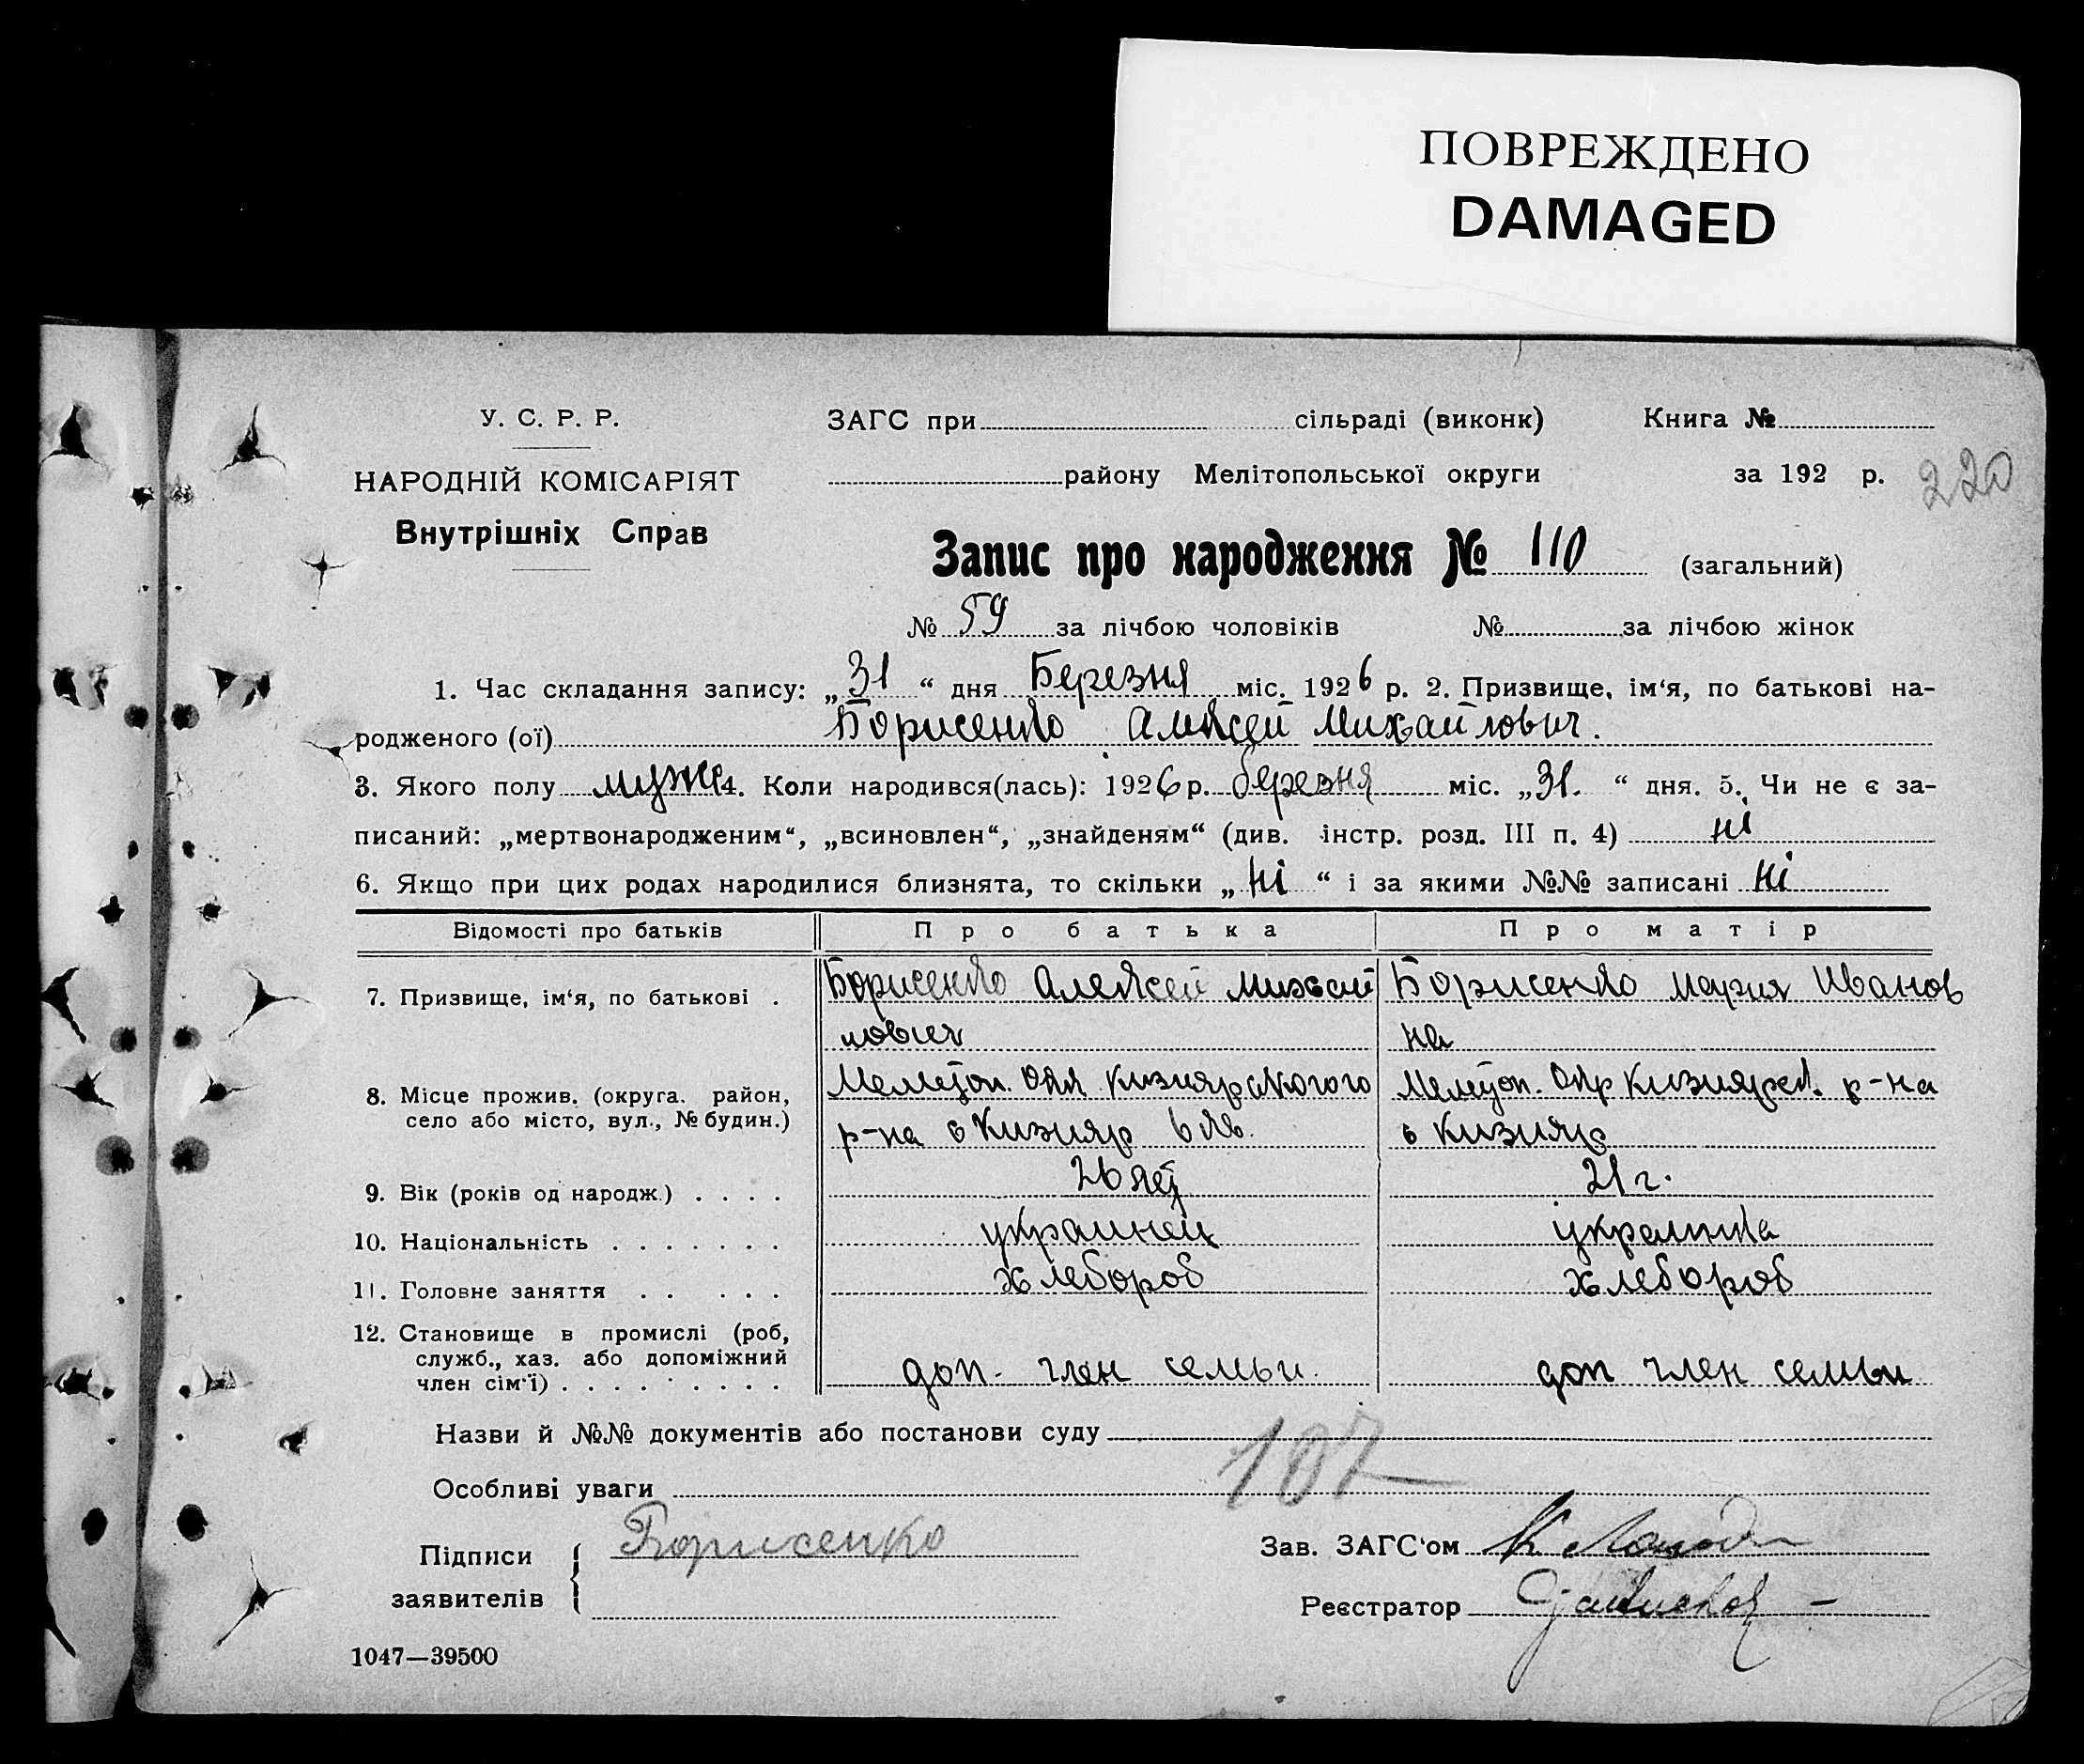 ПОВРЕЖДЕНО
DAMAGED
У. С. Р. Р.
ЗАГС при сільраді (виконк) Книга №
НАРОДНІЙ КОМІСАРІЯТ
району Мелітопольської округи за 192 р.
220
Внутрішніх Справ
Запис про народження № 110 (загальний)
№ 59 за лічбою чоловіків № за лічбою жінок
1. Час складання запису: „31“ дня Березня міс. 1926 р. 2. Призвище, ім‘я, по батькові на-
родженого (ої) Борисенко Алексей Михайлович.
3. Якого полу мужс 4. Коли народився(лась): 1926 р. березня міс. „31.“ дня. 5. Чи не є за-
писаний: „мертвонародженим“, „всиновлен“, „знайденям“ (див. інстр. розд. III п. 4) ні
6. Якщо при цих родах народилися близнята, то скільки „ні“ і за якими №№ записані ні
Відомості про батьків Про батька Про матір
7. Призвище, ім‘я, по батькові . Борисенко Алексей Михай Борисенко Мария Иванов
лович на
8. Місце прожив. (округа. район, Мелитоп. Окр Кизиярского Мелитоп. Окр Кизиярск. р-на
село або місто, вул., № будин.) р-на с Кизияр с Кизияр
9. Вік (років од народж.) . . . . 26 лет 21 г.
10. Національність . . . . . . . украинец украинка
11. Головне заняття . . . . . хлебороб хлебороб
12. Становище в промислі (роб,
служб., хаз. або допоміжний
член сім‘ї) . . . . . . . . . доп. член семьи. доп член семьи
Назви й №№ документів або постанови суду
107
Особливі уваги
Підписи Борисенко Зав. ЗАГС‘ом
заявителів Реєстратор
1047—39500